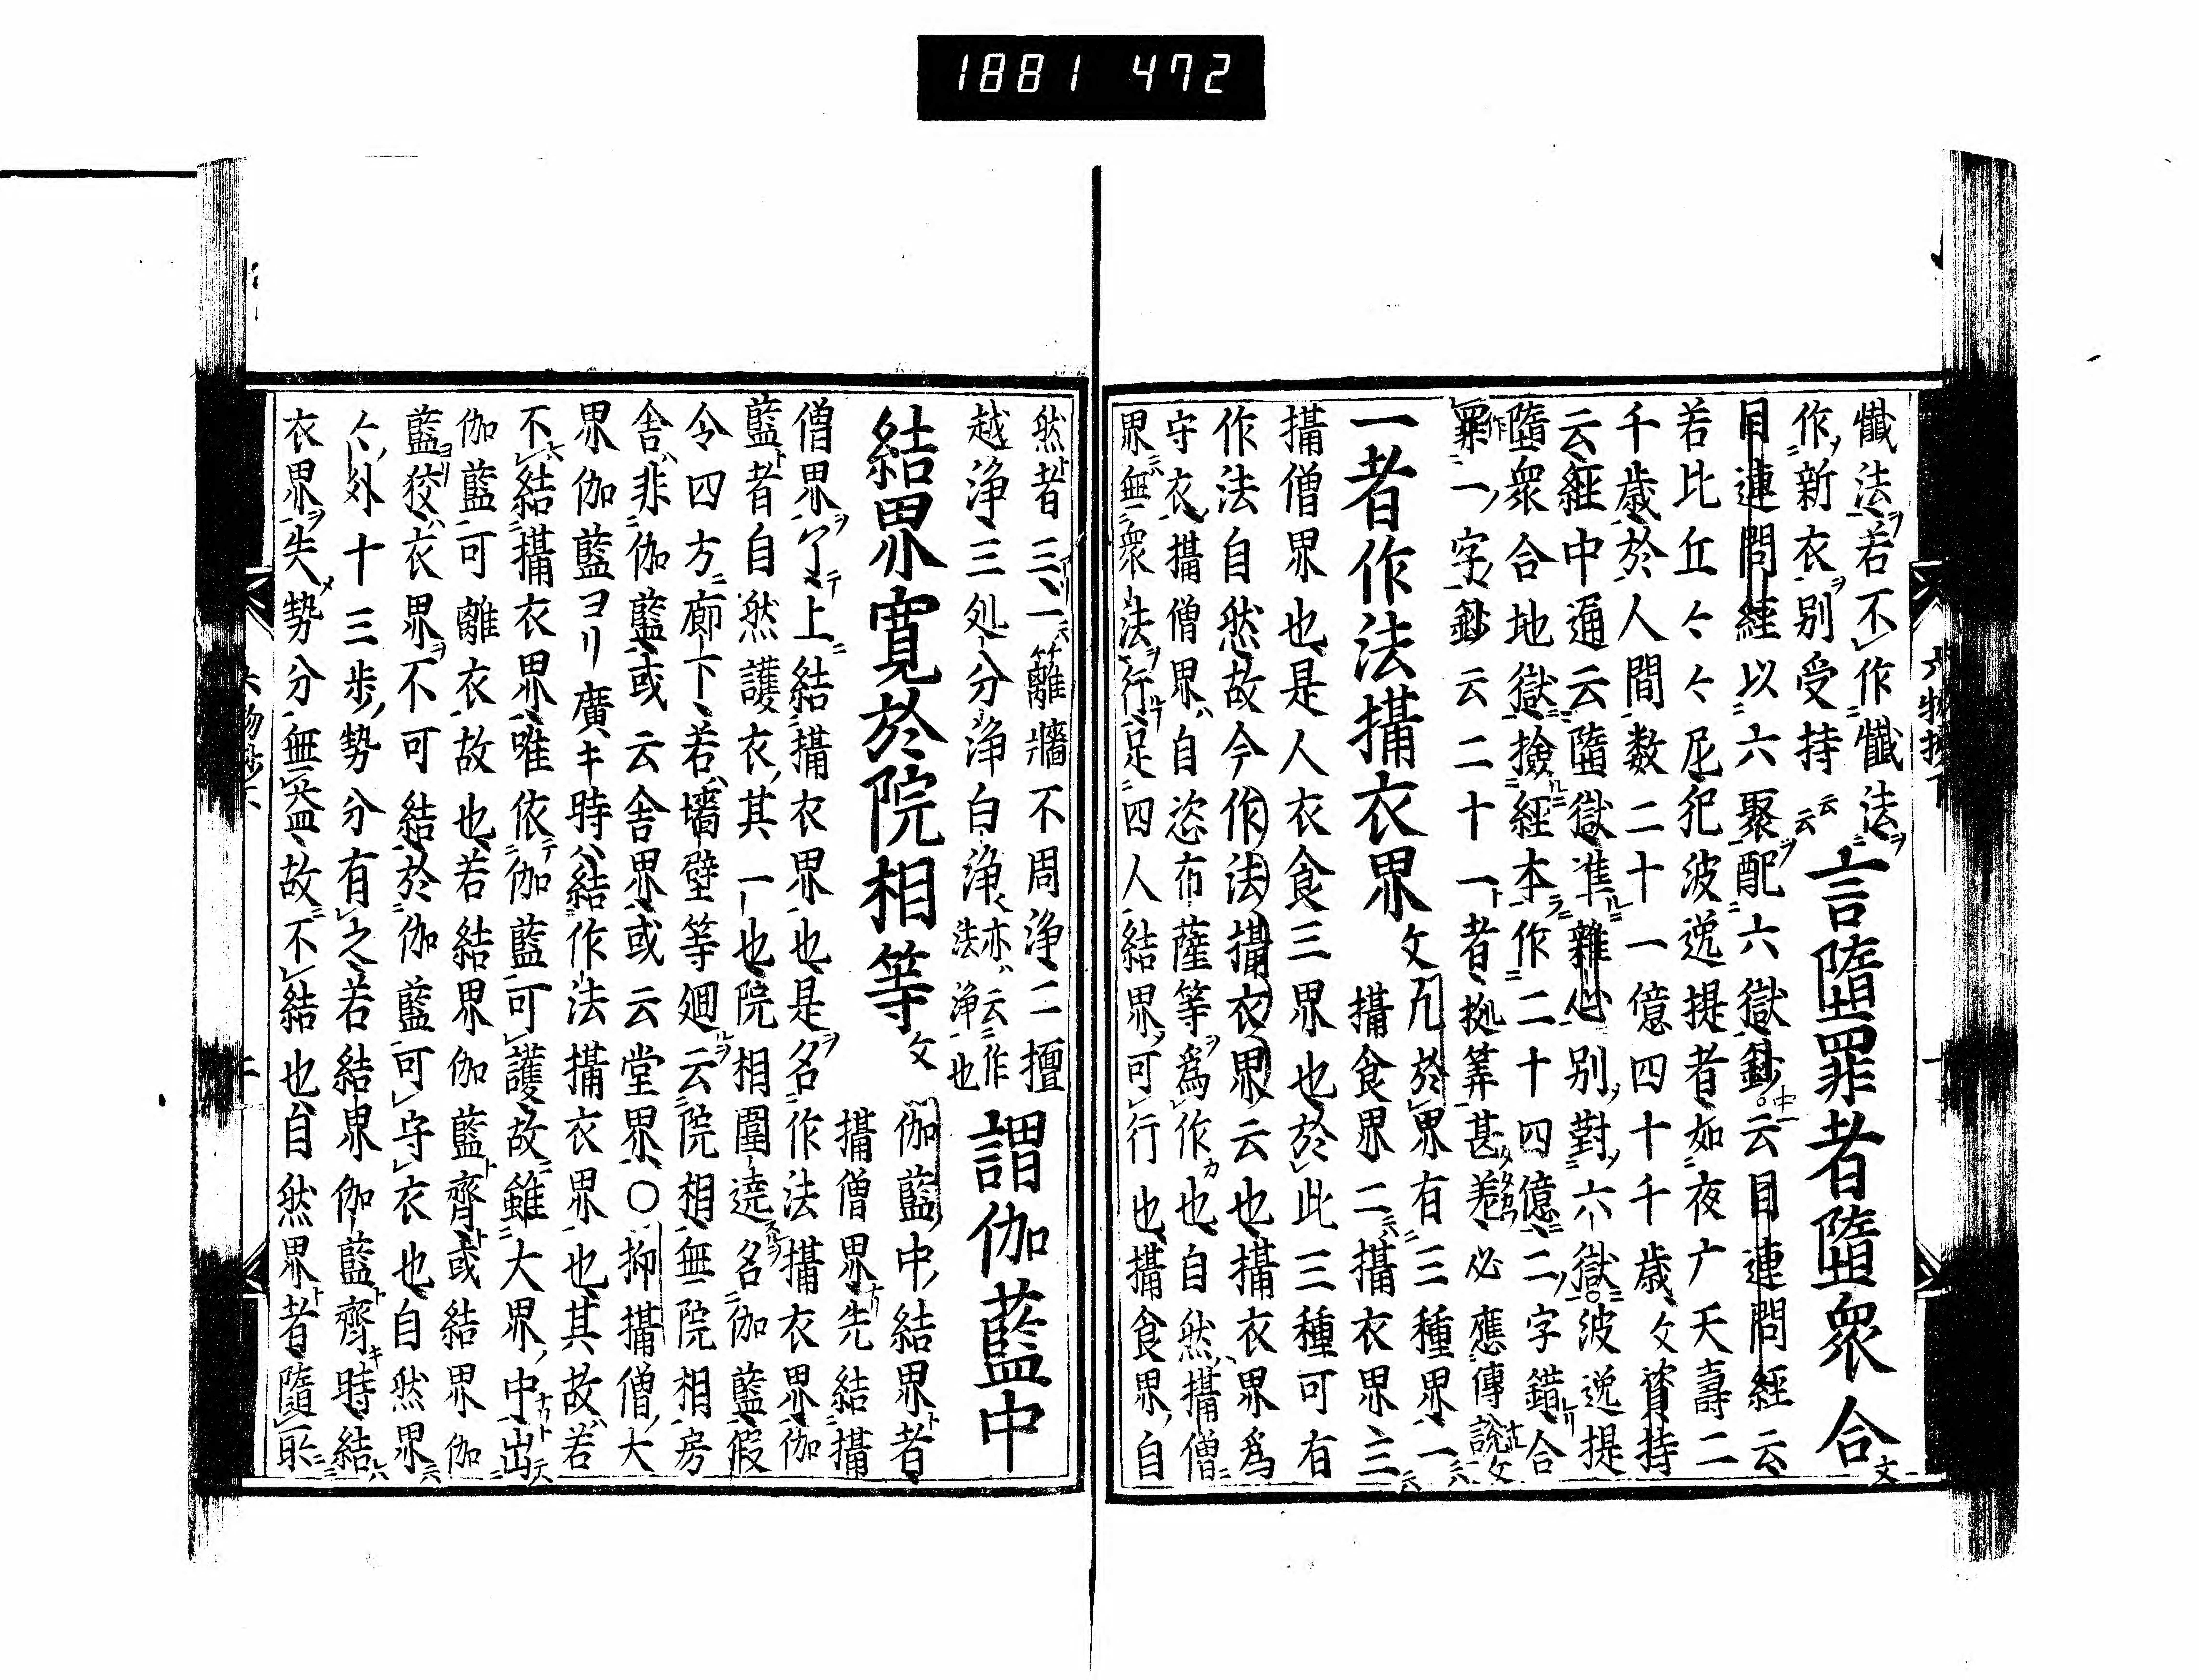 1881 472
懺法ヲ若不作懺法ヲ言墮罪者墮衆合文
作新衣ヲ別受持云云
目連問經以六聚ヲ配六獄鈔中一云目連問經云
若比丘々々々尼犯波逸提者如夜广天壽二
千歳於人間数二十一億四十千歳文資持
云經中通云墮獄準雜心別對六獄波逸提
墮衆合地獄撿經本作二十四億二字錯合
作罪一字鈔云二十一者拠筭甚差必應傳説文
一者作法攝衣界文凡於界有三種界一
攝食界二攝衣界三
攝僧界也是人衣食三界也於此三種可有
作法自然故今作法攝衣界云也攝衣界為
守衣攝僧界ハ自恣布薩等ヲ為作也自然攝僧
界無衆法ヲ行足四人結界可行也攝食界自
然者三一籬牆不周浄二擅
越浄三処分浄白浄亦云作法浄也謂伽藍中
結界寛於院相等文伽藍中結界者
攝僧界先結攝
僧界ヲ了テ上結攝衣界也是ヲ名作法攝衣界伽
藍者自然護衣其一也院相圍遶名伽藍假
令四方廊下若墻壁等廻云院相無院相房
舎非伽藍或云舎界或云堂界○抑攝僧大
界伽藍ヨリ廣キ時ハ結作法攝衣界也其故若
不結攝衣界唯依伽藍可護故雖大界中出
伽藍可離衣故也若結界伽藍齊或結界伽
藍ヨリ狡ハ衣界ヲ不可結於伽藍可守衣也自然界
々外十三歩勢分有之若結界伽藍齊時結
衣界ヲ失勢分無益故不結也自然界者隨一昄
六物抄下